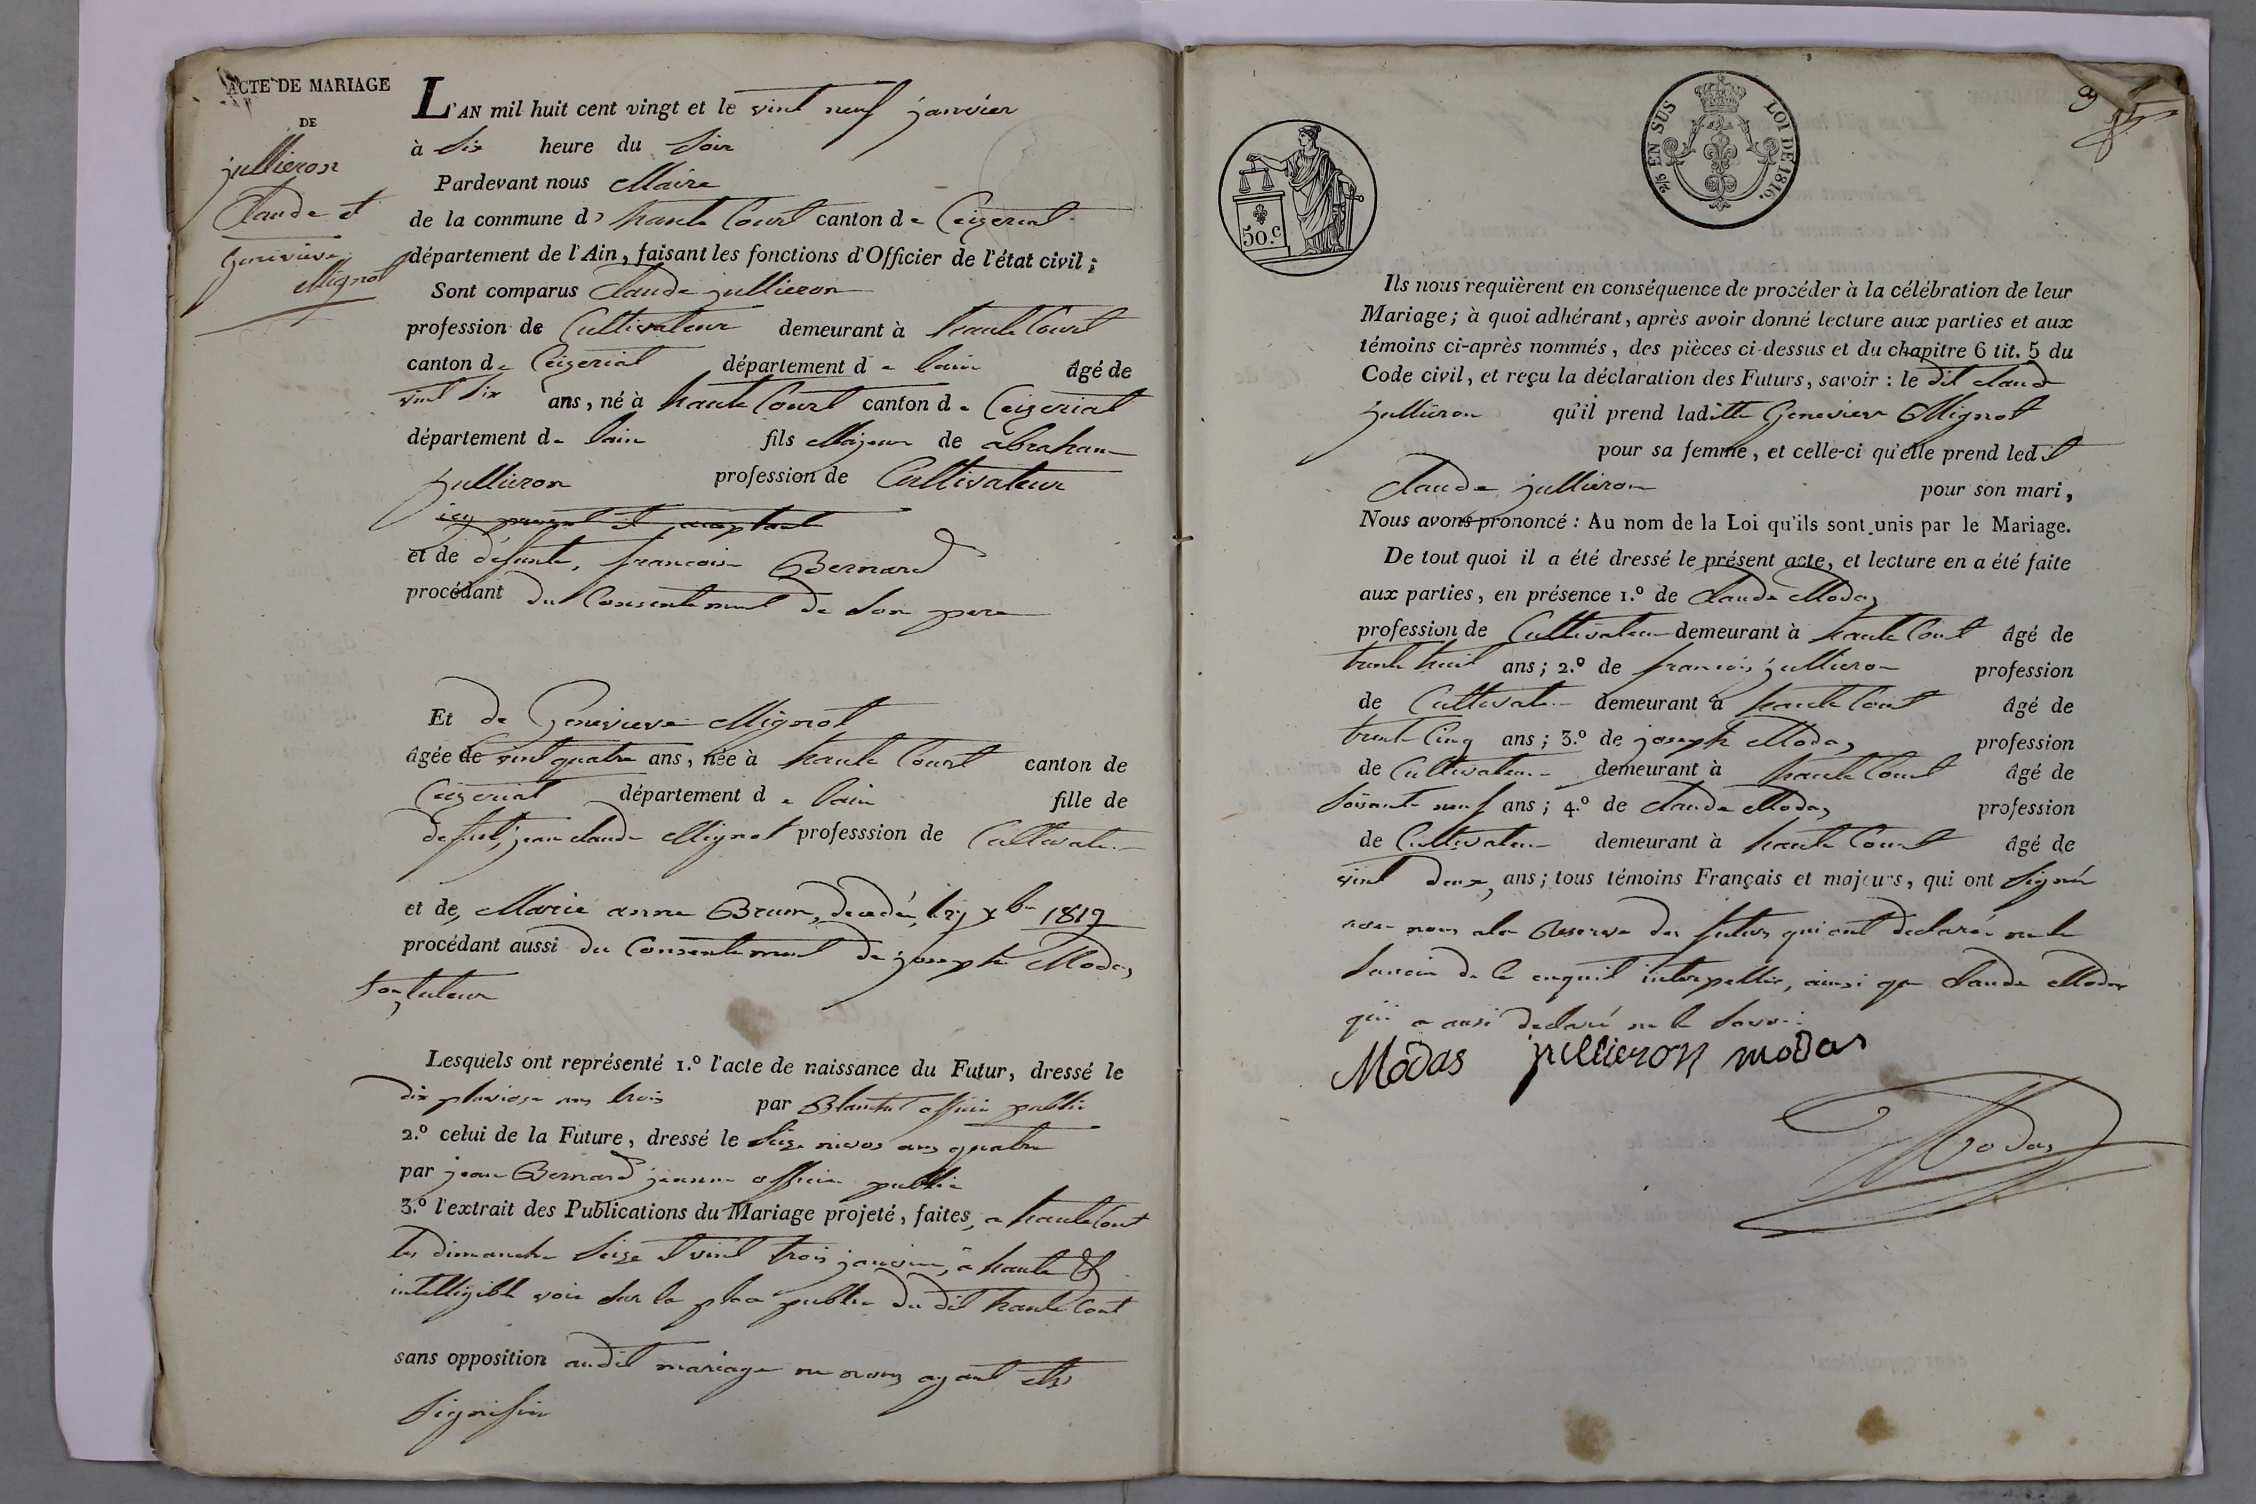 ACTE DE MARIAGE
DE
jullieron
Claude et
Genevieve
Mignot
L'AN mil huit cent vingt et le vint neuf janvier
à Six heure du Soir
Pardevant nous Maire
de la commune d' haute Court canton de Ceizeriat
département de l'Ain, faisant les fonctions d'Officier de l'état civil;
Sont comparus Claude jullieron
profession de Cultivateur demeurant à haute Court
canton de Ceizeriat département de lain âgé de
vint Six ans, né à haute Court canton de Ceizeriat
département de lain fils Majeur de abraham
jullieron profession de Cultivateur
icy present et acceptant
et de défunte, francoise Bernard
procédant du Consentement de Son pere
Et de Genevieve Mignot
âgée de vint quatre ans, née à haute Court canton de
Ceizeriat département de lain fille de
defut, jean claude Mignot professsion de Cultivateur
et de, Marie anne Brun, decedée, le xbre 1819
procédant aussi du Consentement de joseph Modas
Son tuteur
Lesquels ont représenté 1.º l'acte de naissance du Futur, dressé le
dix pluviose ans trois par officier public
2.º celui de la Future, dressé le Seize nivos ans quatre
par jean Bernard officier public
3.º l'extrait des Publications du Mariage projeté, faites, a haute Court
les dimanche Seize et vint trois janvier, a haute &
intelligible voie Sur la place public du dit haute Court
sans opposition audit mariage ne nous ayant etés
Signifiée
9
2/5 EN SUS LOI DE 1816.
50.c
Ils nous requièrent en conséquence de procéder à la célébration de leur
Mariage; à quoi adhérant, après avoir donné lecture aux parties et aux
témoins ci-après nommés, des pièces ci-dessus et du chapitre 6 tit. 5 du
Code civil, et reçu la déclaration des Futurs, savoir: le dit claude
jullieron qu'il prend laditte Genevieve Mignot
pour sa femme, et celle-ci qu'elle prend ledit
Claude jullieron pour son mari,
Nous avons prononcé: Au nom de la Loi qu'ils sont unis par le Mariage.
De tout quoi il a été dressé le présent acte, et lecture en a été faite
aux parties, en présence 1.º de Claude Modas
profession de Cultivateur demeurant à haute Court âgé de
trente huit ans; 2.º de francois jullieron profession
de Cultivateur demeurant à haute Court âgé de
trente Cinq ans; 3.º de joseph Modas profession
de Cultivateur demeurant à haute Court âgé de
Soixante neuf ans; 4.º de claude Modas profession
de Cultivateur demeurant à haute Court âgé de
vint deux ans; tous témoins Français et majeurs, qui ont Signée
avec nous a la Reserve des futurs qui ont declarée ne le
Savoir de ce enquit interpellée, ainsi que Claude Modas
qui a ausi declaré ne le Savoir
Modas jullieron modas
Modas